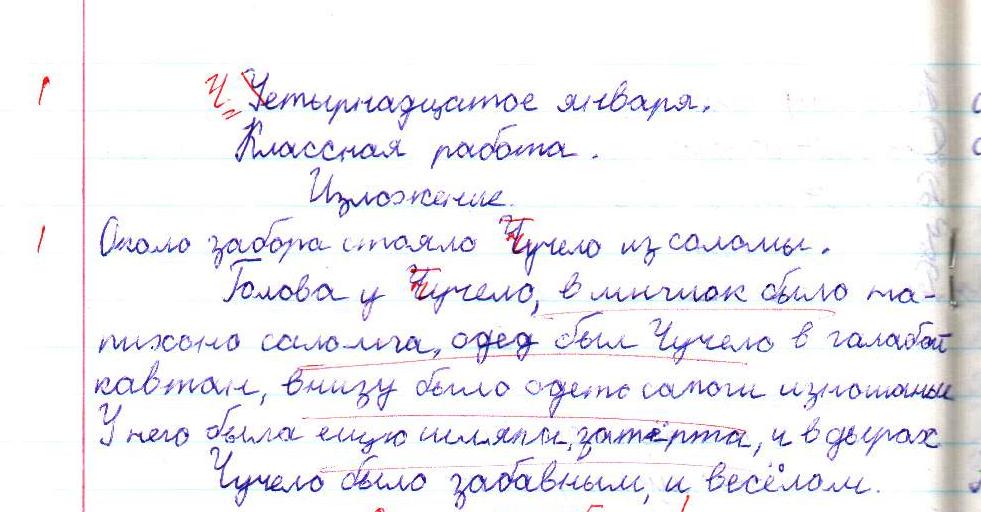 Четырнадцатое января.
Классная работа.
Изложение.
Около забора стояло Чучело из соломы.
Голова у Чучело, в мичиок было на-
пихоно саломга, одед был Чучело в галабой
кавтан, внизу было одето сапоги изношаные
У него была ещю шляпа, затёрта, и в дырах
Чучело было забавным, и весёлом.